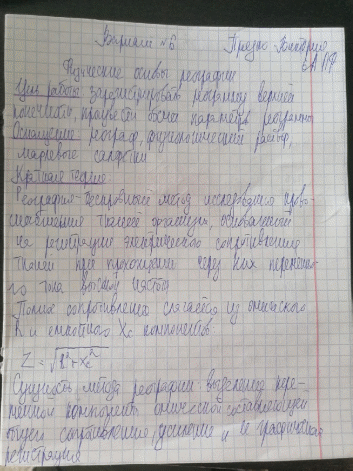 Вариант №6
Физические основы реографии
Цель работы: зарегистрировать реограмму верхней
конечности, провести расчет параметров реограммы
Оснащение: реограф, физиологический раствор,
марлевые салфетки
Краткая теория
Реография - бескровный метод исследования крово-
снабжения тканей организма, основанный
на регистрации электрического сопротивления
тканей при прохождении через них переменно-
го тока высокой частоты
Полное сопротивление слагается из омического
R и емкостного Xc компонентов:
Z = √R²+Xc²
Сущность метода реографии: выделение пере-
менной компоненты омической составляющей
общего сопротивления, усиление и её графическая
регистрация